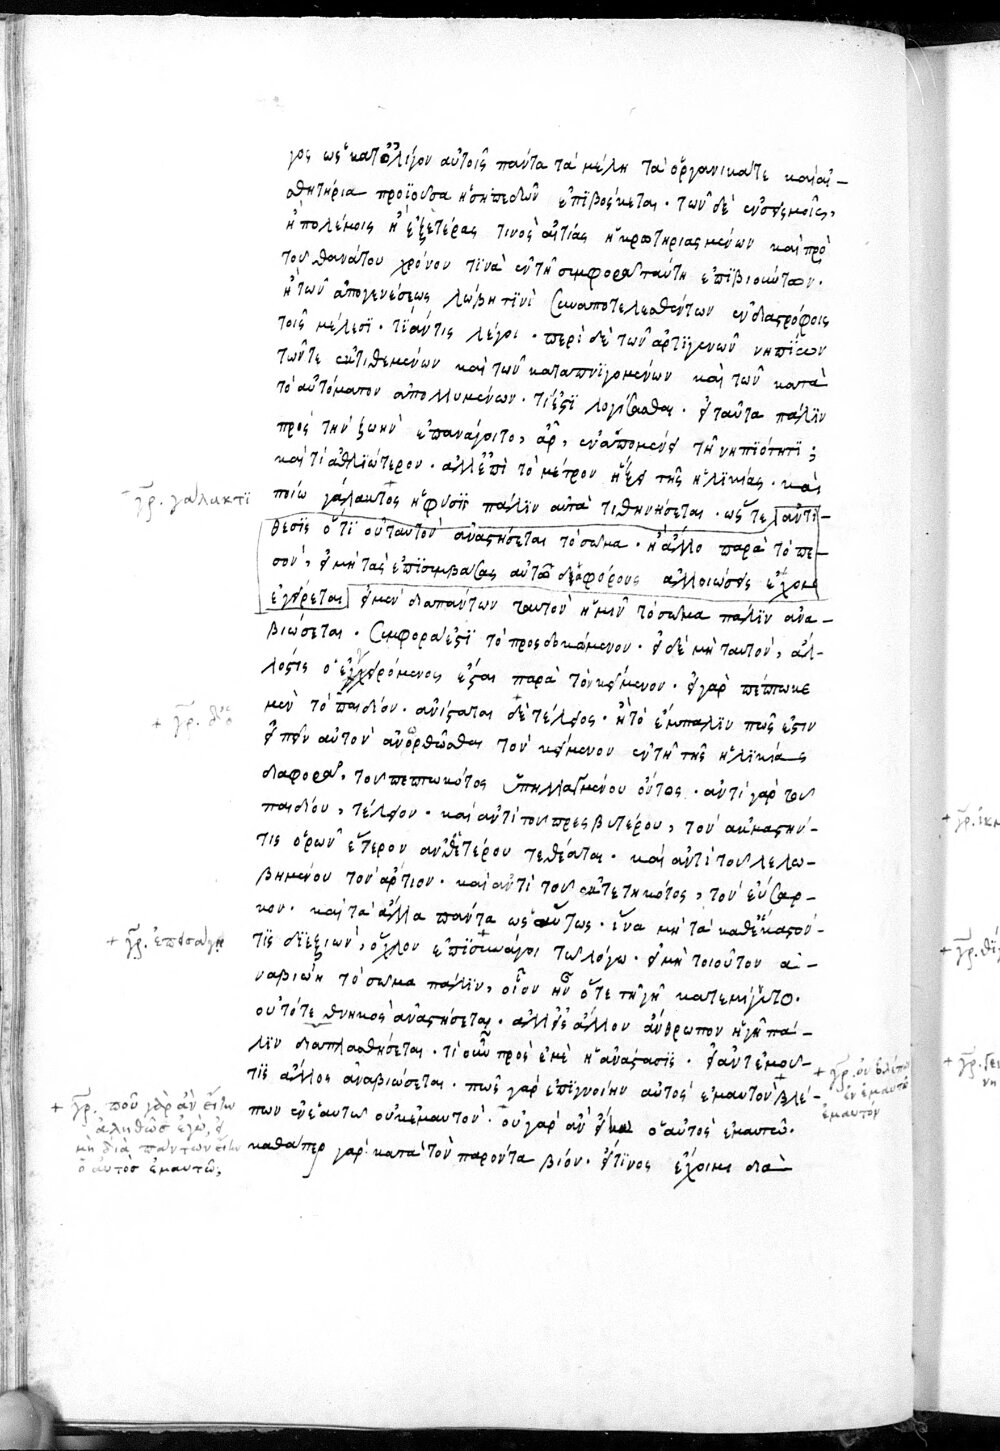 γος ὡς κατ ὀλίγον αὐτοῖς πάντα τὰ μέλη τὰ ὀργανικά τε καὶ αἰ-
σθητήρια προϊοῦσα ἡ σηπεδὼν ἐπιβόσκεται. τῶν δὲ ἐν σεισμοῖς,
ἢ πολέμοις ἢ ἐξ ἑτέρας τινὸς αἰτίας ἠκρωτηριασμένων καὶ πρὸ
τοῦ θανάτου χρόνον τινὰ ἐν τῇ συμφορᾷ ταύτῃ ἐπιβιούντων.
ἢ τῶν ἀπὸ γενέσεως λώβῃ τινὶ συναποτελεσθέντων ἐν διαστρόφοις
τοῖς μέλεσι. τί ἄν τις λέγοι. περὶ δὲ τῶν ἀρτιγενῶν νηπίων
τῶν τε ἐκτιθεμένων καὶ τῶν καταπνιγομένων καὶ τῶν κατὰ
τὸ αὐτόματον ἀπολλυμένων. τί ἐστι λογίσασθαι. εἰ ταῦτα πάλιν
πρὸς τὴν ζωὴν ἐπανάγοιτο, ἆρ, ἐναπομένει τῇ νηπιότητι;
καὶ τί ἀθλιώτερον. ἀλλ ἐπὶ τὸ μέτρον ἥξει τῆς ἡλικίας. καὶ
ποίῳ γάλακτος ἡ φύσις πάλιν αὐτὰ τιθηνήσεται. ὥστε ἀντί-
θεσις ὅτι οὐ ταυτὸν ἀναστήσεται τὸ σῶμα. ἢ ἄλλο παρὰ τὸ πε-
σόν, εἰ μὴ τὰς ἐπισυμβάσας αὐτῷ διαφόρους ἀλλοιώσεις ἔχον
ἐγείρεται εἰ μὲν διαπάντων ταυτὸν ἡμῖν τὸ σῶμα πάλιν ἀνα-
βιώσεται. συμφορά ἐστι τὸ προσδοκώμενον. εἰ δὲ μὴ ταυτόν, ἄλ-
λος τις ὁ ἐγειρόμενος ἔσται παρὰ τὸν κείμενον. εἰ γὰρ πέπτωκε
μὲν τὸ παιδίον. ἀνίσταται δὲ τέλειος. ἢ τὸ ἔμπαλιν πῶς ἔστιν
εἰπεῖν αὐτὸν ἀνορθῶσθαι τὸν κείμενον ἐν τῇ τῆς ἡλικίας
διαφορᾷ, τοῦ πεπτωκότος ὑπηλλαγμένου ὄντος. ἀντὶ γὰρ τοῦ
παιδίου, τέλειον. καὶ ἀντὶ τοῦ πρεσβυτέρου, τὸν ἀκμαστήν-
τις ὁρῶν ἕτερον ἀνθ ἑτέρου τεθέαται. καὶ ἀντὶ τοῦ λελω-
βημένου τὸν ἄρτιον. καὶ ἀντὶ τοῦ ἐκτετηκότος, τὸν εὔσαρ-
κον. καὶ τὰ ἄλλα πάντα ὡσαύτως. ἵνα μὴ τὰ καθ ἕκαστόν-
τις διεξιών, ὄχλον ἐπισυνάγοι τῷ λόγῳ. εἰ μὴ τοιοῦτον ἀ-
ναβιῴη τὸ σῶμα πάλιν, οἷον ἦν ὅτε τῇ γῇ κατεμίγνυτο.
οὐ τότε θνηκὸς ἀναστήσεται. ἀλλ εἰς ἄλλον ἄνθρωπον ἡ γῆ πά-
λιν διαπλασθήσεται. τί οὖν πρὸς ἐμὲ ἡ ἀνάστασις. εἰ ἀντ ἐμοῦ
τις ἄλλος ἀναβιώσεται. πῶς γὰρ ἐπιγνοίην αὐτὸς ἐμαυτὸν βλέ-
πων ἐν ἑαυτῷ οὐκ ἐμαυτόν. οὐ γὰρ ἂν εἴην ὁ αὐτὸς ἐμαυτῷ.
καθάπερ γὰρ κατὰ τὸν παρόντα βίον. εἴ τινος ἔχοιμι διὰ
γρ. γάλακτι
+ γρ. δὲ ὁ
+ γρ. ἐπεισάγῃ
+ γρ. ποῦ γὰρ ἂν εἴην
ἀληθῶς ἐγώ, εἰ
μὴ διὰ πάντων εἴην
ὁ αὐτὸς ἐμαυτῷ;
+ γρ. οὐ βλέπων
ἐν ἐμαυτῷ
ἐμαυτόν